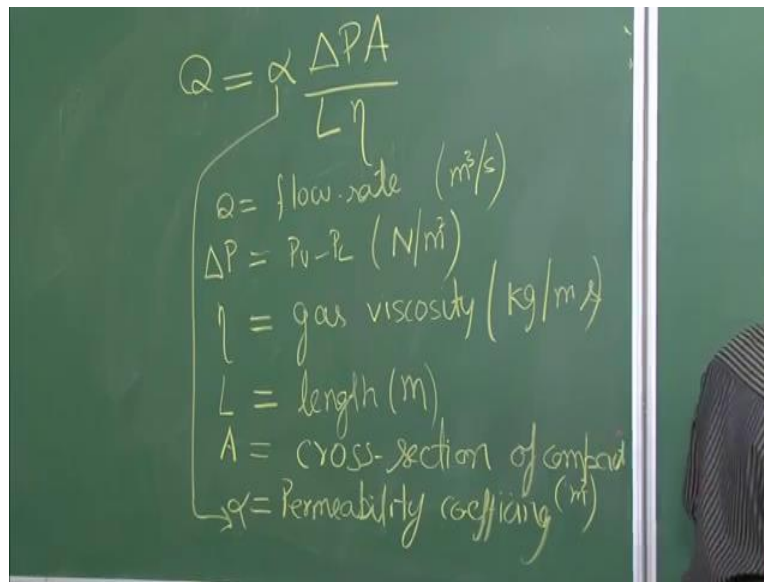 Q = α ΔPA / Lη
Q = flow rate (m³/s)
ΔP = PU-PL (N/m²)
η = gas viscosity (kg/m s)
L = length (m)
A = cross-section of compact
α = Permeability coefficing (m²)